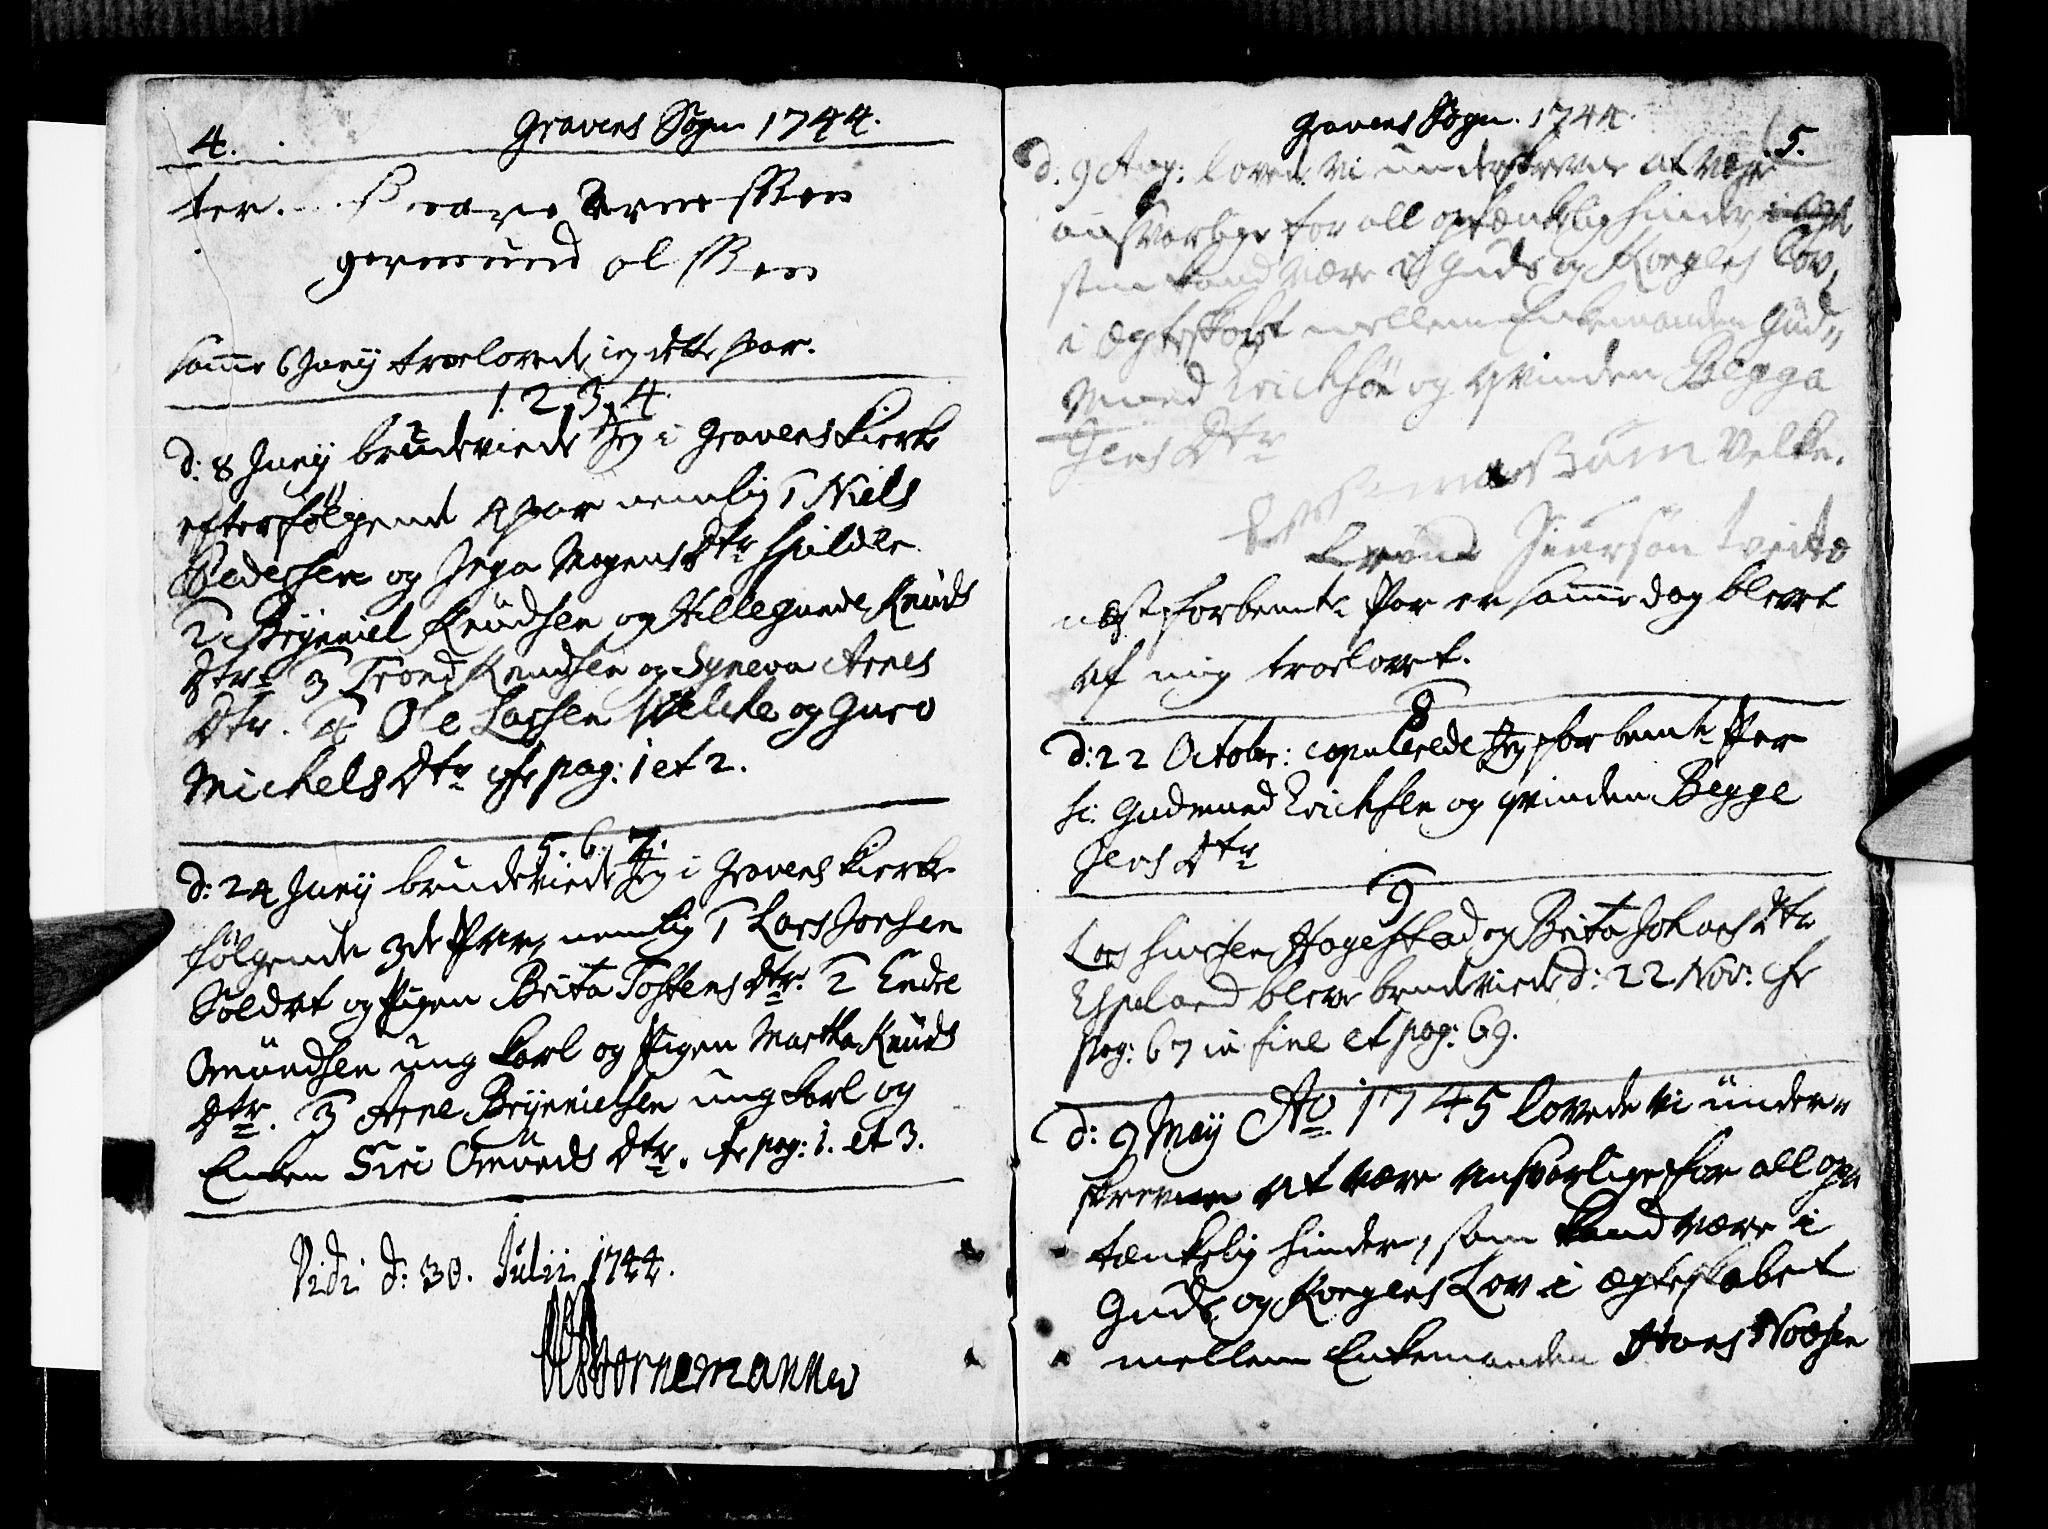 4. Gravens Sogn 1744.
ter.
germund
samme 6 Junij troelovede jeg dette Par.
1. 2. 3. 4.
d: 8 Junij brudeviede Jeg i Gravens Kierke
efterfølgende 4 Par nemlig 1 Niels
Pedersen og Inga Mogens Dtr Hielde
2 Brynniel Knudsen og Hillegunde Knuds
Dtr 3 Trond Knudsen og Syneva Arnes
Dtr. 4 Ole Larsen Velcke og Guro
Michels Dtr cfr pag: 1 et 2.
5. 6. 7.
d: 24 Junij brudeviede Jeg i Gravens Kierke
følgende 3de Par, nemlig 1 Lars Jonsen
Soldat og Pigen Brita Tostens Dtr. 2 Endre
Omundsen ung Karl og Pigen Martha Knuds
Dtr. 3 Arne Brynnielsen ung Karl og
Enken Siri Omunds Dtr. cfr pag: 1. et 3.
Vidi d: 30. Julii 1744.
Bornemannus
Gravens Sogn. 1744. 5.
d. 9 Aug: lovede vi underskrevne at være
ansvarlige for all optænkelig hinder,
som kand være i Guds og Kongens Lov,
i Ægteskabet mellem Enkemanden Gud„
mund Erichsøn og qvinden Begga
Jens Dtr
Velke.
Iversøn Tveito
næstforbemte Par er samme dag blevet
af mig troelovet.
8
d: 22 October: copulerede Jeg forbemte Par
h: Gudmund Erichsen og qvinden Begge
Jens Dtr
9
Lars Hagestad og Brita Johans Dtr
Espeland bleve brudeviede d: 22 Nov: cfr
pag: 67 in fine et pag: 69.
d: 9 Maij Ao 1745 lovede vi under„
skrevne at være ansvarlige for all op„
tænkelig hinder, som kand være i
Guds og Kongens Lov i ægteskabet
mellem Enkemanden Hans